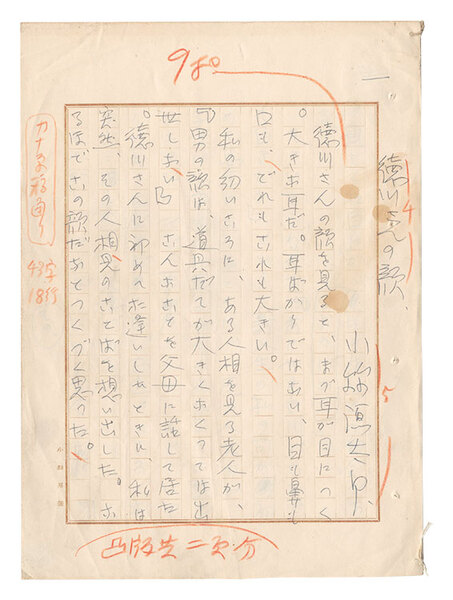 一
徳川さんの顔
小絲源太郎
徳川さんの顔を見ると、まづ耳が目につく
。大きな耳だ。耳ばかりではない、目も鼻も
口も、どれもこれも大きい。
私の幼いころに、ある人相を見る老人が、
「男の顔は、道具だてが大きくなくっては出
世しない」こんなことを父母に話して居た
。徳川さんに初めてお逢いしたときに、私は
突然、その人相見のことばを想い出した。な
るほどこの顔だなとつくづく思った。
9ポ
4
5
カナ原稿通り
43字
18行
凸版共二頁分